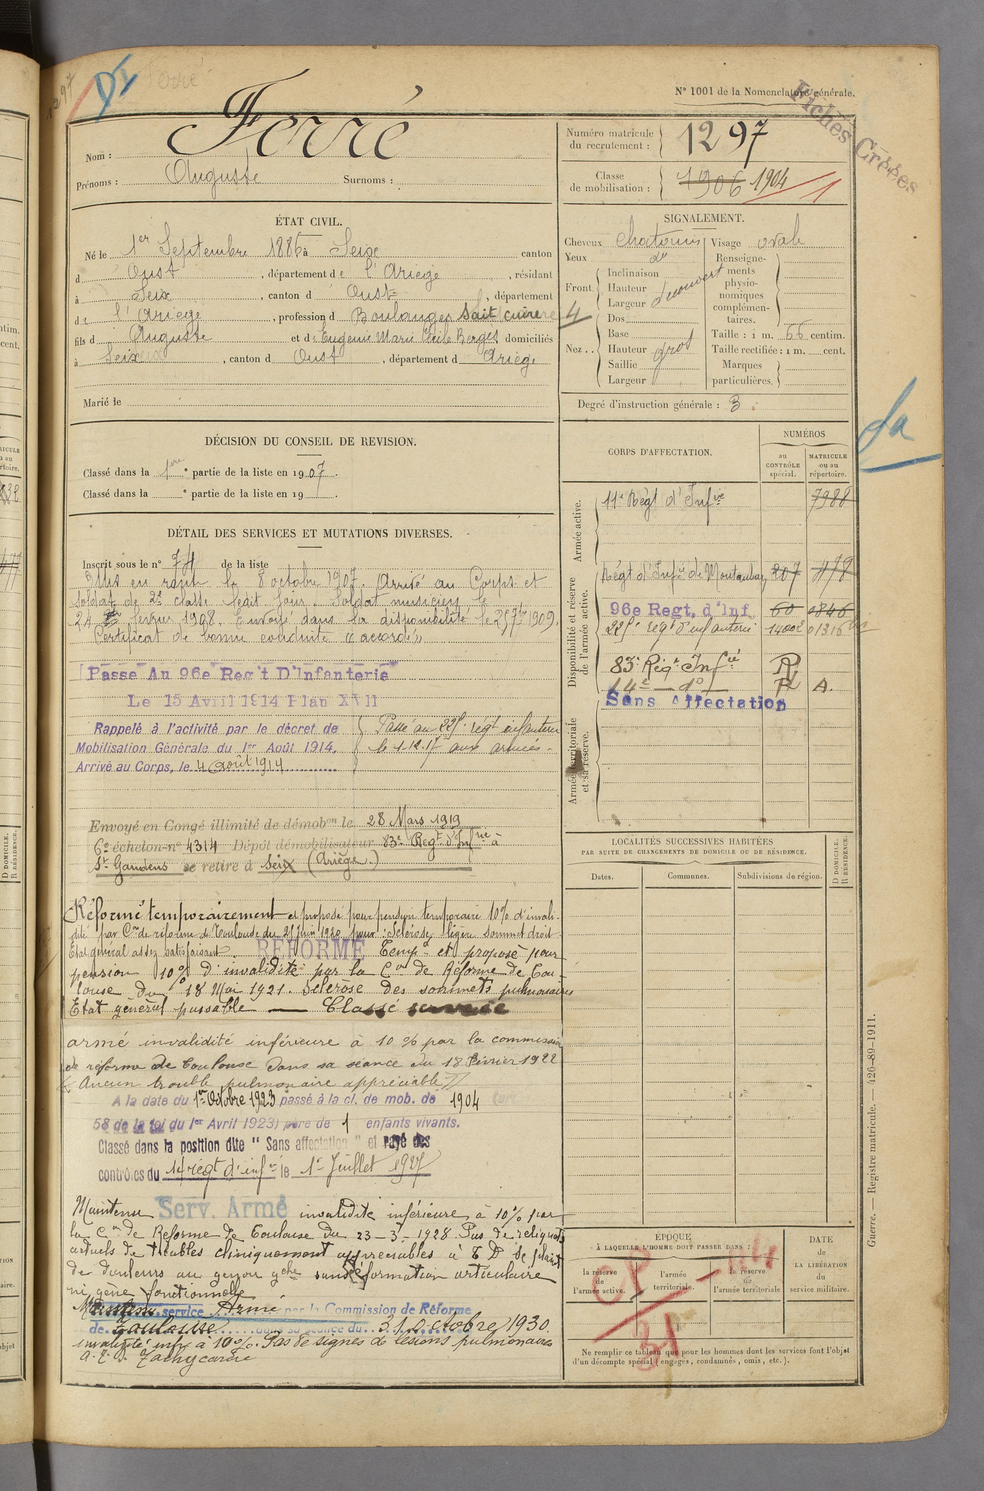 N° 1001 de la Nomenclature générale.
Fiches Créées
Ferré
Nom :
Prénoms : Auguste Surnoms :
Numéro matricule du recrutement : 1297
Classe de mobilisation : 1906 1904
ÉTAT CIVIL.
Né le 1er Septembre 1886 à Seix canton
d Oust, département de l'Ariège, résidant
à Seix, canton d Oust, département
de l'Ariège, profession d Boulanger Sait cuire
fils d Auguste et de Eugénie Marie Cécile Berges domiciliés
à Seix, canton d Oust, département d Ariège
Marié le
SIGNALEMENT.
Cheveux chatains
Yeux do
Front Inclinaison
Hauteur
Largeur découvert
Nez Dos
Base
Hauteur gros
Saillie
Largeur
Visage ovale
Renseignements physionomiques complémentaires.
Taille : 1 m. 66 centim.
Taille rectifiée : 1 m. cent.
Marques particulières.
Degré d'instruction générale : 3
DÉCISION DU CONSEIL DE REVISION.
Classé dans la 1ère partie de la liste en 1907.
Classé dans la e partie de la liste en 19
DÉTAIL DES SERVICES ET MUTATIONS DIVERSES.
Inscrit sous le n° 74 de la liste
Mis en route le 8 octobre 1907. Arrivé au Corps et
Soldat de 2e classe ledit jour. Soldat musicien le
24 février 1908. Envoyé dans la disponibilité le 25 7bre 1909.
Certificat de bonne conduite "accordé"
Passé Au 96e Reg't D'Infanterie
Le 15 Avril 1914 Plan XVII
Rappelé à l'activité par le décret de
Mobilisation Générale du 1er Août 1914.
Arrivé au Corps, le 4 Août 1914
Passé au 225e régt infanterie
le 4.12.17 aux armées.
Envoyé en Congé illimité de démobon le 28 Mars 1919
6e échelon-n° 4314 Dépôt démobilisateur 83e Regt d'Infrie à
St Gaudens se retire à Seix (Ariège.)
Réformé temporairement et proposé pour pension temporaire 10% d'invali-
dité par Con de réforme de Toulouse du 25 Juin 1920 pour : Sclérose légère sommet droit
Etat général assez satisfaisant. REFORMÉ Tempre et proposé pour
pension 10% d'invalidité par la Con de Réforme de Tou-
louse du 18 Mai 1921. Sclérose des sommets pulmonaires
Etat général passable — Classé service
armé invalidité inférieure à 10 % par la commission
de réforme de Toulouse dans sa séance du 18 Février 1922
(Aucun trouble pulmonaire appréciable)
A la date du 1er Octobre 1923 passé à la cl. de mob. de 1904
58 de la loi du 1er Avril 1923) père de 1 enfants vivants.
Classé dans la position dite "Sans affectation" et rayé des
contrôles du 14e régt d'infie le 1er Juillet 1927
Maintenu Serv. Armé invalidité inférieure à 10% par
la Con de Réforme de Toulouse du 23-3-1928 Pas de reliquats
actuels de troubles cliniquement appréciables à E D Se plaint
de douleurs au genou gche sans déformation articulaire
ni gêne fonctionnelle
Maintenu service Armé par la Commission de Réforme
de Toulouse dans sa séance du 31 Octobre 1930
invalidité infre à 10%. Pas de signes de lésions pulmonaires
Tachycardie
CORPS D'AFFECTATION.
NUMÉROS
au CONTRÔLE spécial.
MATRICULE ou au répertoire.
Armée active.
11e Régt d'Infrie 7988
Disponibilité et réserve de l'armée active.
Régt d'Infrie de Montauban 207 478
96e Regt. d'Inf. 60 0846
225e régt d'infanterie 01316
83e Régt Infrie
14e — do — A.
Sans Affectation
Armée territoriale et sa réserve.
LOCALITÉS SUCCESSIVES HABITÉES
PAR SUITE DE CHANGEMENTS DE DOMICILE OU DE RÉSIDENCE.
Dates. Communes. Subdivisions de région.
D DOMICILE. R RÉSIDENCE.
ÉPOQUE
À LAQUELLE L'HOMME DOIT PASSER DANS :
la réserve de l'armée active.
l'armée territoriale.
la réserve de l'armée territoriale
DATE de LA LIBÉRATION du service militaire.
Ne remplir ce tableau que pour les hommes dont les services font l'objet
d'un décompte spécial (engagés, condamnés, omis, etc.).
Guerre. — Registre matricule. — 426-89-1911.